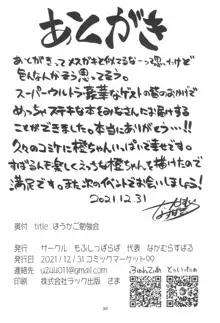 あとがき
あとがきってメスガキと似てるなーって思ったけど
そんなんかそう思ってそう。
スーパーウルトラ豪華なゲストの皆のおかげで
めっちゃステキな本をみなさんにお届けする
ことができました。本当にありがとう…!!
久々のコミケに橙ちゃんいっぱいで幸せです。
すばるんも楽しくえっちな橙ちゃんと描けたので
満足です。また次のイベントでお会いしましょう!
2021.12.31
奥付 title:ほうかご勉強会
発行 サークル もふしっぽらぼ 代表 なかむらすばる
発行日 2021/12/31 コミックマーケット99
連絡先 u244011@gmail.com
印刷 株式会社ラック出版 さま
30